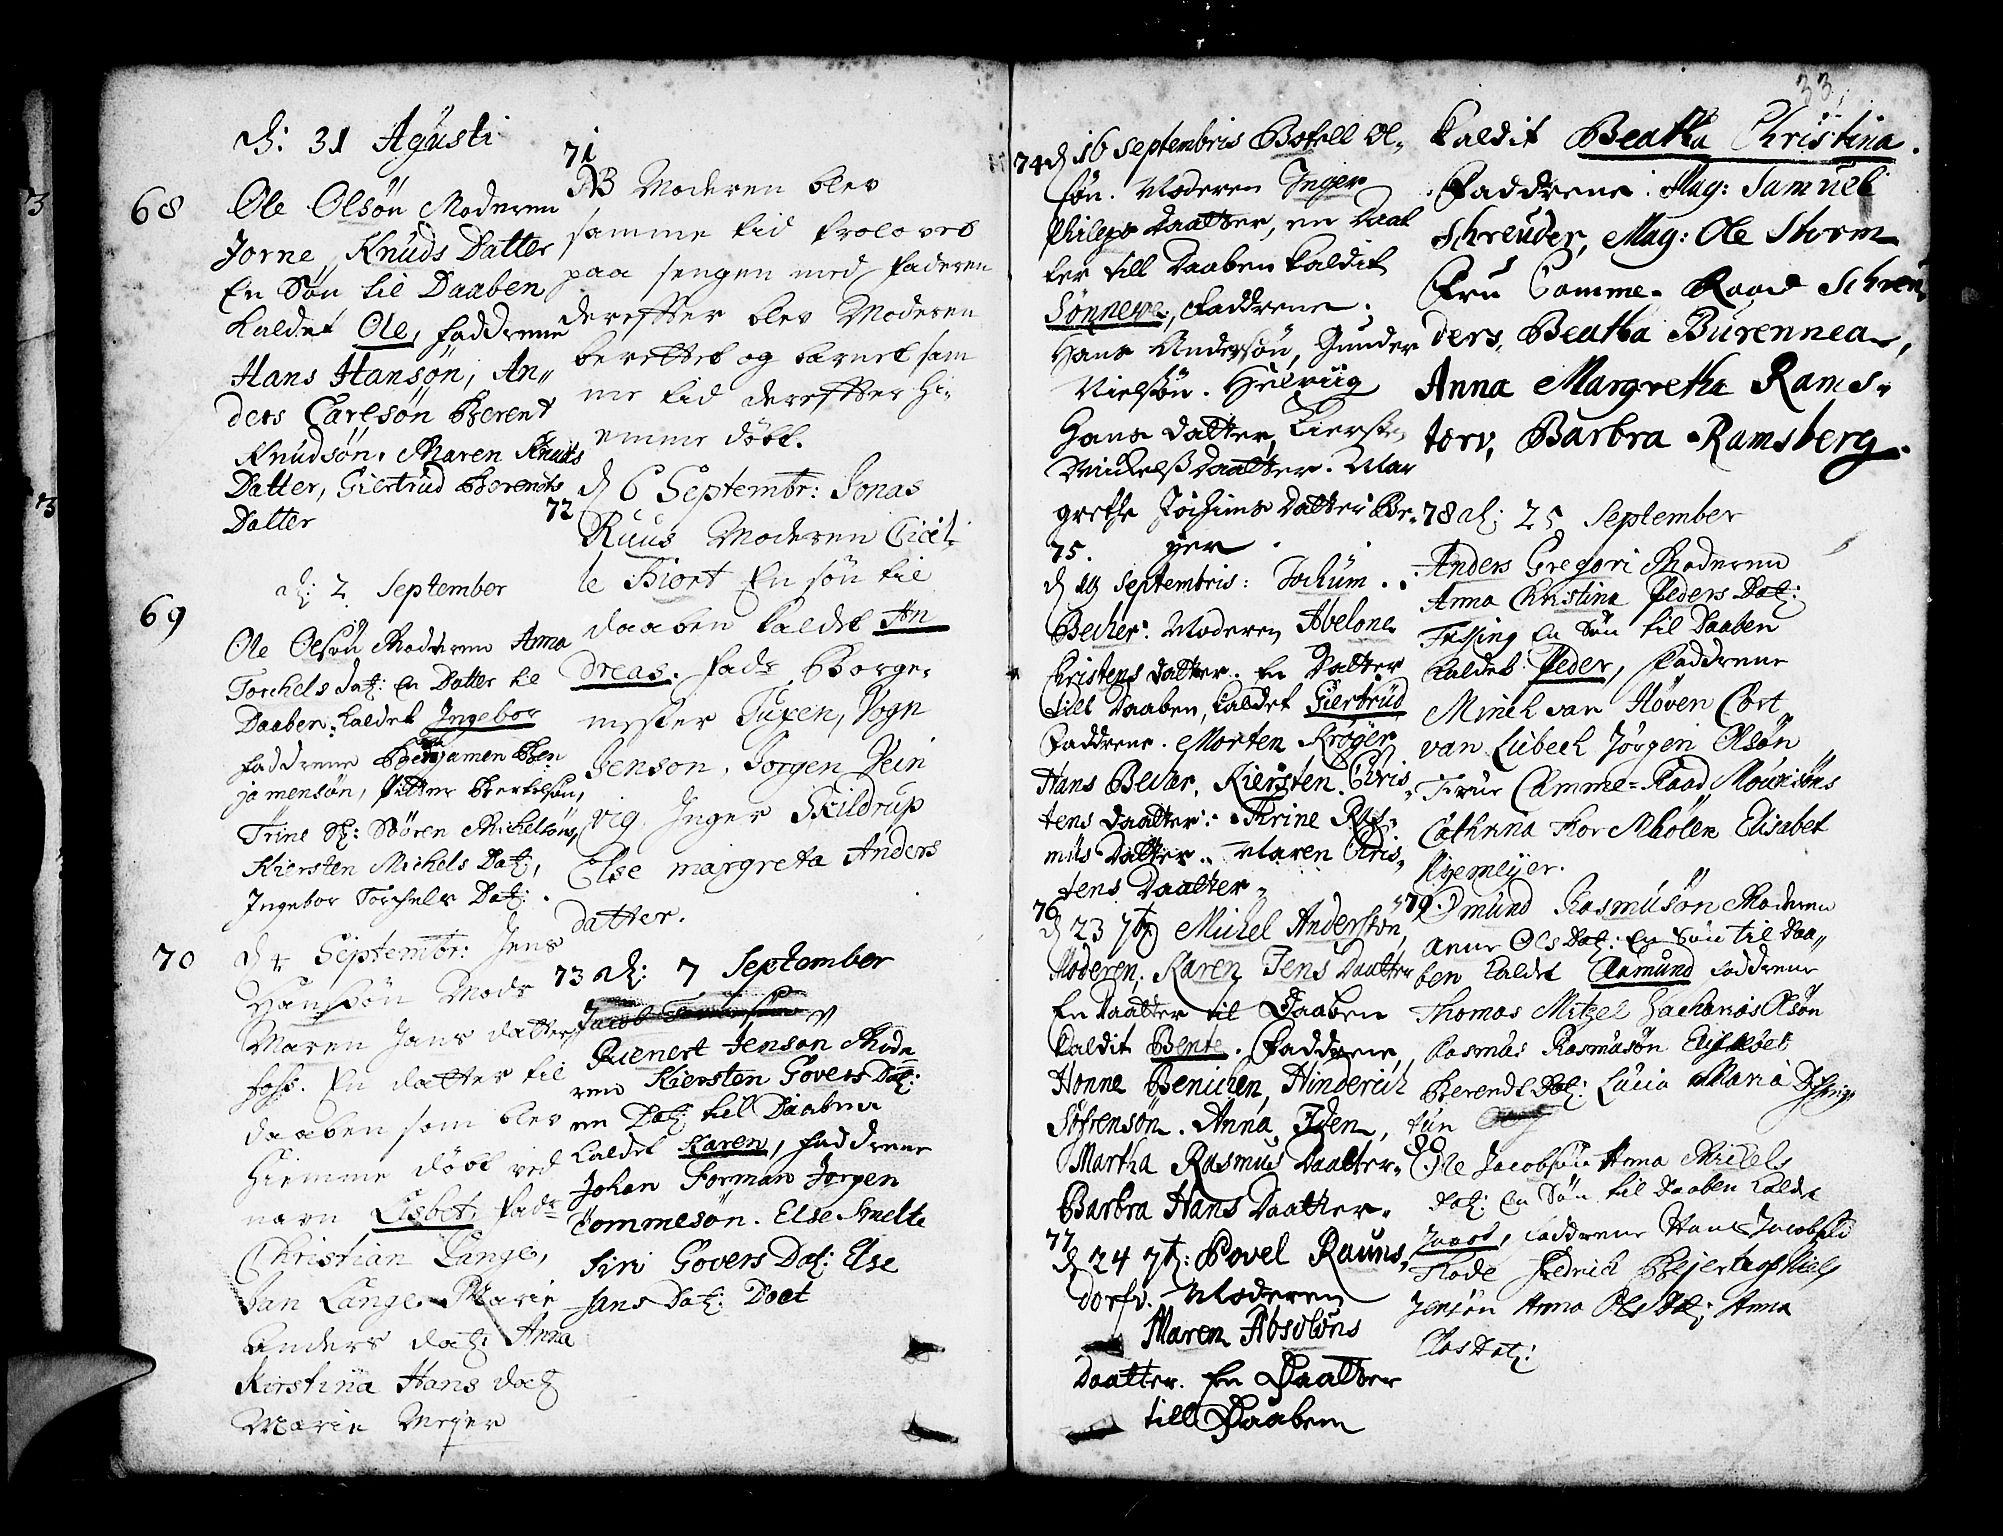 33
d: 31 Agusti
68
Ole Olsøn Moderen
Jorne Knuds Datter
En Søn til Daaben
kaldet Ole, faddrene
Hans Hansøn, An„
ders Carlsøn Berent
Knudsøn. Maren Knuds
Datter, Giertrud Berents
Datter
d: 2 September
69
Ole Olsøn Moderen Anna
Torchels dat: en Datter til
Daaben kaldet Ingebor
faddrene Benjamen Ben
jamensøn, Pitter Bertelsøn,
Trine Sl: Søören Michelsøns,
Kiersten Michels Dat,
Ingebor Torchels Dat: .
70
d 4 Septembr: Jens
Hansøn Modr
Maren Jans datter
foss. En datter til
daaben som blev
hiemme döbt ved
navn Lisbet. fadr
Christian Lange,
Jan Lange Marie
Anders dat: Anna
Kirstina Hans dat
Marie Meyer
71
NB Moderen blev
samme tid trolovet
paa sengen med faderen
dereffter blev Moderen
berettet og barnet sam
me tid dereffter hi-
emme döbt.
72
d 6 Septembr: Jonas
Ruus Moderen Cicil-
le Hiort En søn til
daaben kaldet An
dreas. fadr Borge-
mester Tuxen, Vogn
Jenson, Jorgen Vein
vig Inger Skildrup
Else margreta Anders
datter.
73 d: 7 September
Rienert Jenson Mode
ren Kiersten Govers Dat:
en Dat: til Daaben
kaldet Karen, faddrene
Johan Forman Jorgen
Tommesøn. Else Smelte
Siri Govers Dat: Else
Jans Dat: Doct
74 d 16 Septembris Botell Ol-
søn. Moderen Inger
Philips Daatter, en Daat
ter till Daaben kaldit
Sønneve, Faddrene:
Hans Andersøn, Gunder
Nielsøn. Helvüg
Hans Datter, Kierste
Mickelß Daatter. Mar
grethe Jochims Datter Be-
yer
75.
d 19 Septembris: Jochum
Becher: Moderen Abelone
Christens datter. En Datter
till Daaben, kaldet Giertrüd
Faddrene. Morten Krøger
Hans Becher, Kiersten Chris-
tens Daatter. Thrine Ras-
müs Datter. Maren Chris-
tens Daatter
76
d 23 7br Michel Anderssøn,
Moderen, Karen Jens Daatter
En Daatter til Daaben
kaldit Bente. Faddrene,
Honne Benichen, Hinderich
Søfrensøn. Anna Iden,
Martha Rasmus Daatter-
Barbra Hans Daatter.
77
d 24 7br: Povel Rauns-
dorfv. Moderen
Maren Absolons
Daatter. En Daatter
till Daaben
kaldit Beatha Christina.
Faddrene: Mag: Samuel
Schreuder, Mag: Ole Storm
Fru Camme- Raad Schreu
ders, Beatha Burennea,
Anna Margretha Rams-
torv, Barbra Ramsberg.
78 d: 25 September
Anders Gregori Moderen
Anna Christina Peders Dat:
En Søn til Daaben
kaldet Peder, Faddrene
Minch van Høven Cort
van Lübech Jørgen Olsøn
Frue Camme=Raad
Cathrina Elisabet

79. Omund Rasmusøn Moderen
Anne Ols Dat: En Søn til Daa„
ben kaldet Aamund faddrene
Thomas Mitzel Zacharias Olsøn
Rasmus Rasmusøn Elisabet
Berendt Dat: Lucia Maria
tun
80
Ole Jacobsøn Anna Michels
Dat: En Søn til Daaben kaldet
faddrene Hans Jacobsøn
Tode Fredrich Niels
Jensøn Anna Ols Dat: Anna
Clas Dat: